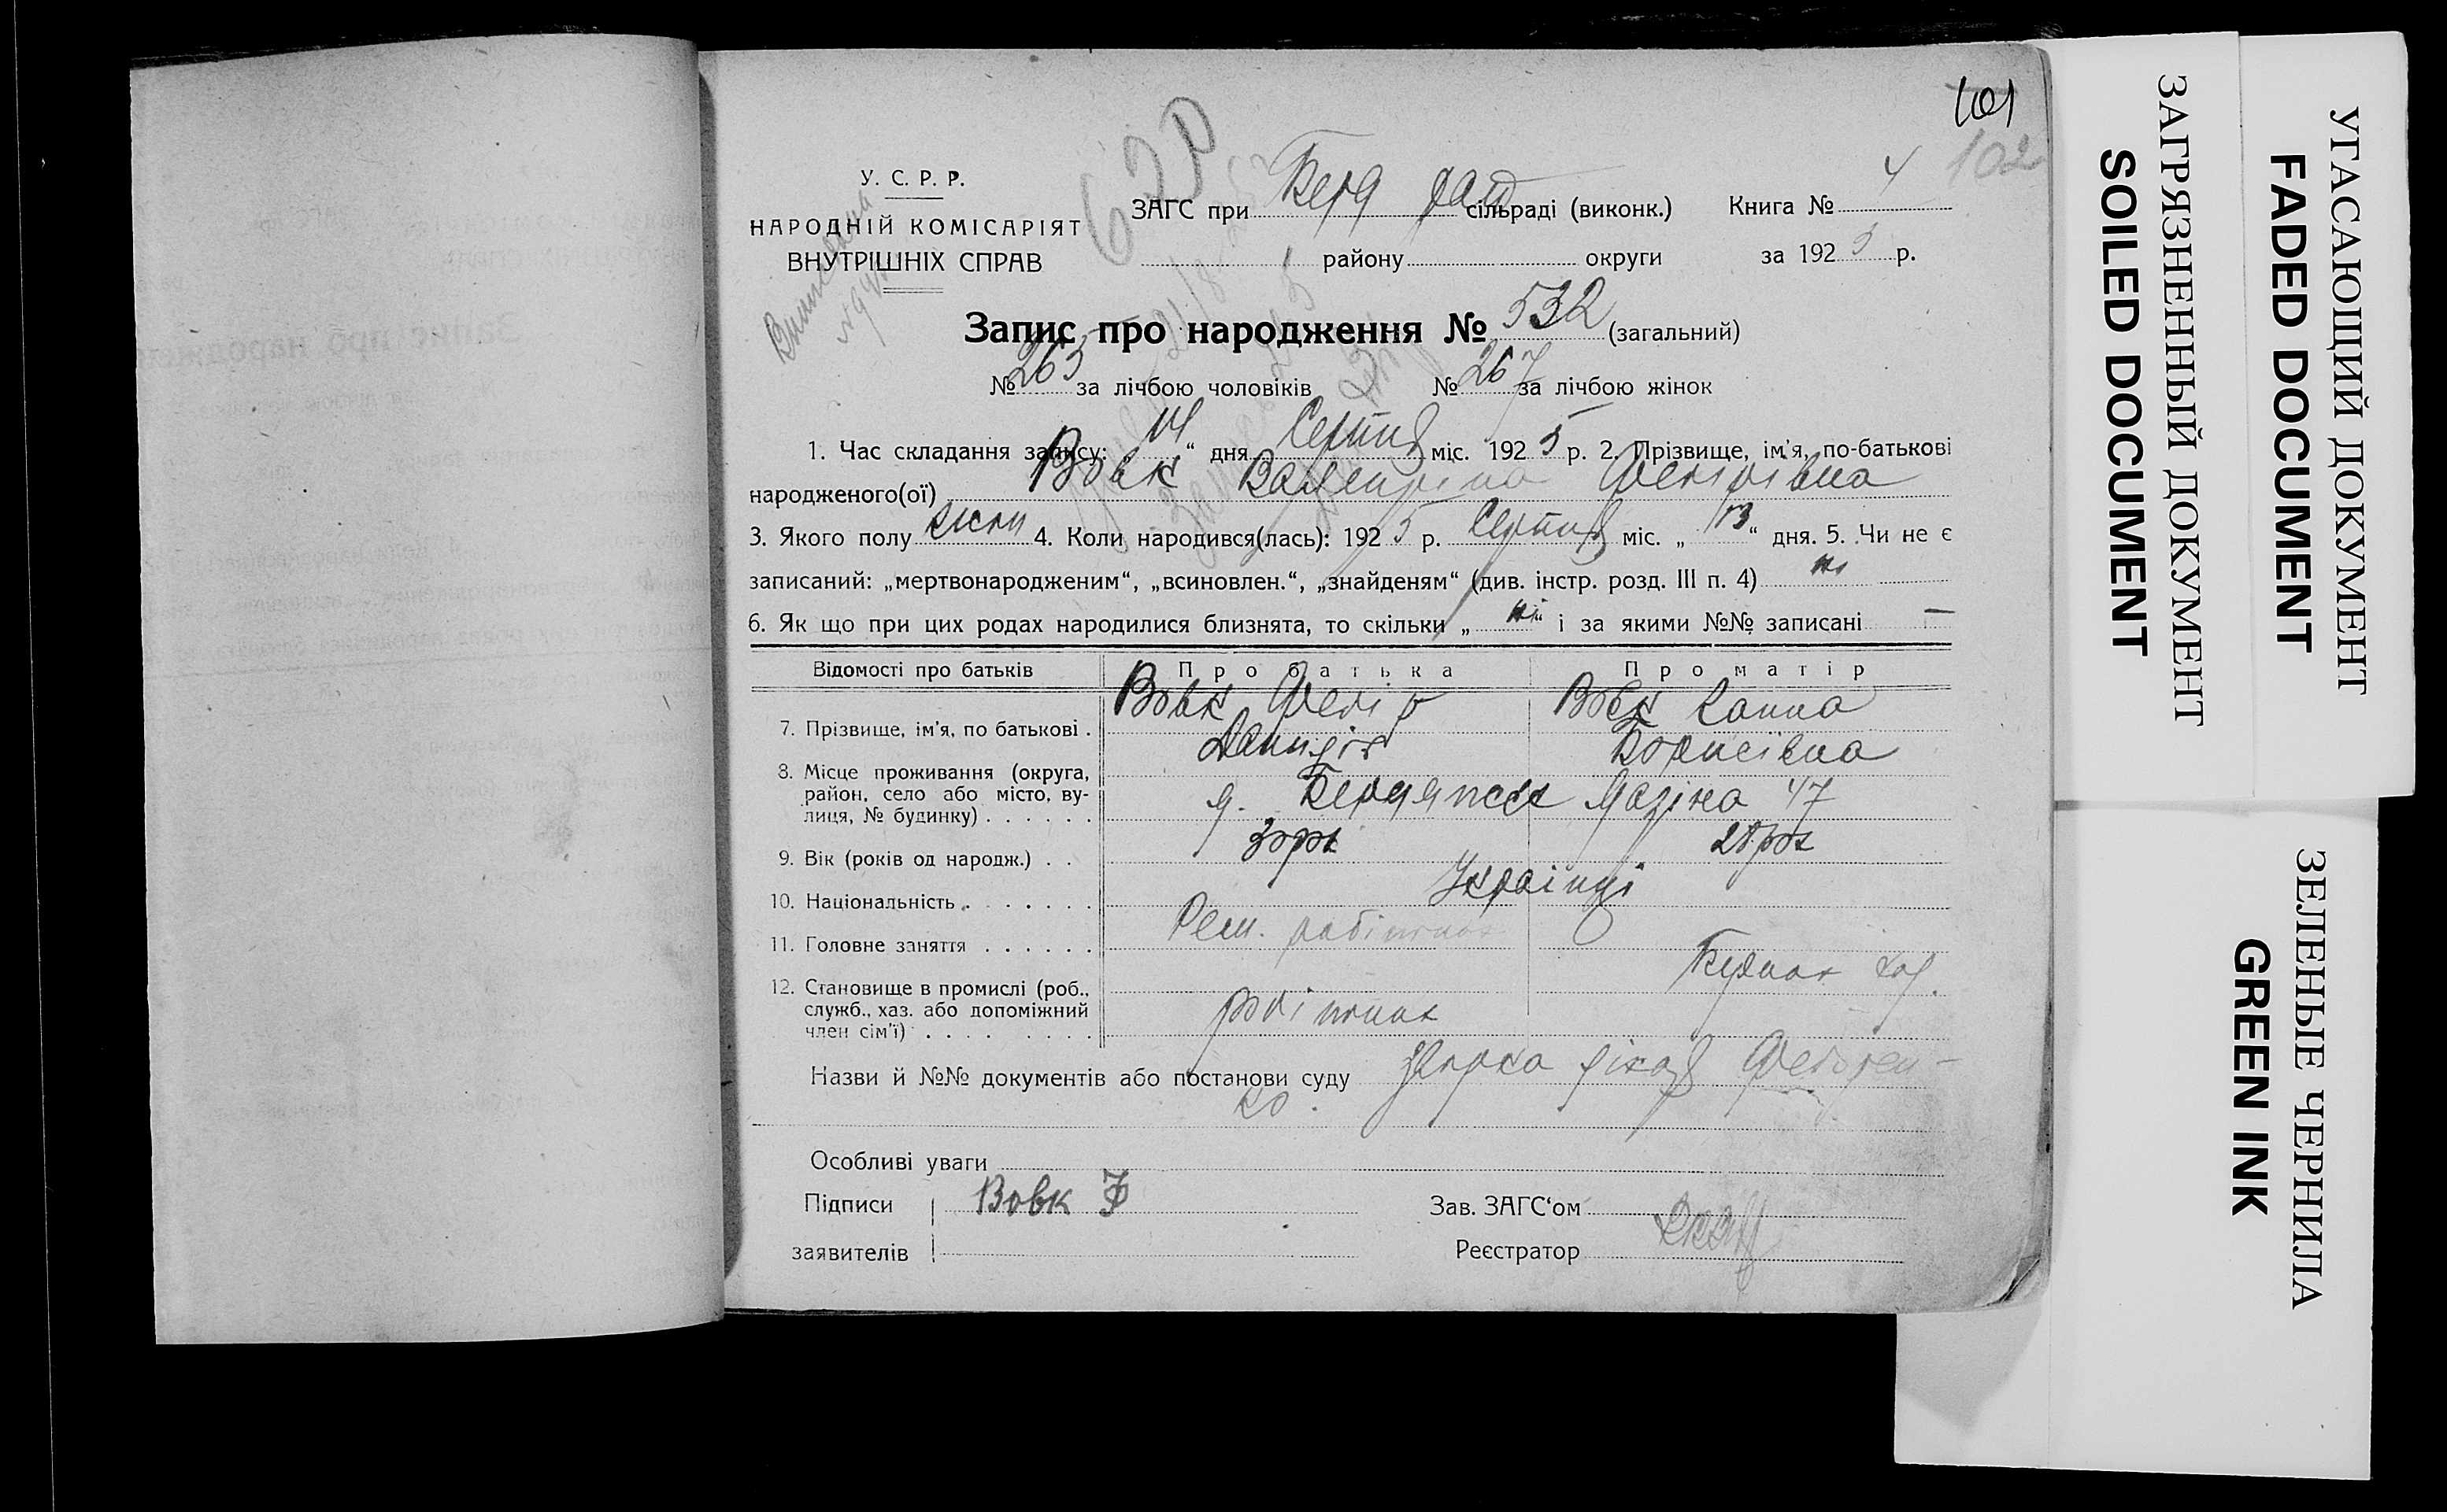 101
102
У. С. Р. Р.
НАРОДНІЙ КОМІСАРІЯТ
ВНУТРІШНІХ СПРАВ
ЗАГС при Берд рай сільраді (виконк.) Книга № 4
району округи за 1925 р.
Запис про народження № 532 (загальний)
№ 265 за лічбою чоловіків № 267 за лічбою жінок
1. Час складання запису: 14 “ дня Серпня міс. 1925 р. 2. Прізвище, ім'я, по-батькові
народженого(ої) Вовк Валентіна Федорівна
3. Якого полу жіночи 4. Коли народився(лась): 1925 р. Серпня міс. „ 13 “ дня. 5. Чи не є
записаний: „мертвонародженим“, „всиновлен.“, „знайденям“ (див. інстр. розд. III п. 4) ні
6. Як що при цих родах народилися близнята, то скільки „ ні “ і за якими №№ записані —
Відомості про батьків Про батька Про матір
7. Прізвище, ім'я, по батькові . Вовк Федір Вовк Ганна
Борисівна
8. Місце проживання (округа,
район, село або місто, ву-
лиця, № будинку) . . . . . . Бердянськ 47
9. Вік (років од народж.) . . 28 рок
10. Національність . . . . . . . Українці
11. Головне заняття . . . . . . Рем. робітник
12. Становище в промислі (роб.,
служб., хаз. або допоміжний
член сім'ї) . . . . . . . . робітник
Назви й №№ документів або постанови суду лікаря Федорен-
ко.
Особливі уваги
Підписи Вовк Ф Зав. ЗАГС‘ом
заявителів Реєстратор
УГАСАЮЩИЙ ДОКУМЕНТ
FADED DOCUMENT
ЗАГРЯЗНЕННЫЙ ДОКУМЕНТ
SOILED DOCUMENT
ЗЕЛЕНЫЕ ЧЕРНИЛА
GREEN INK